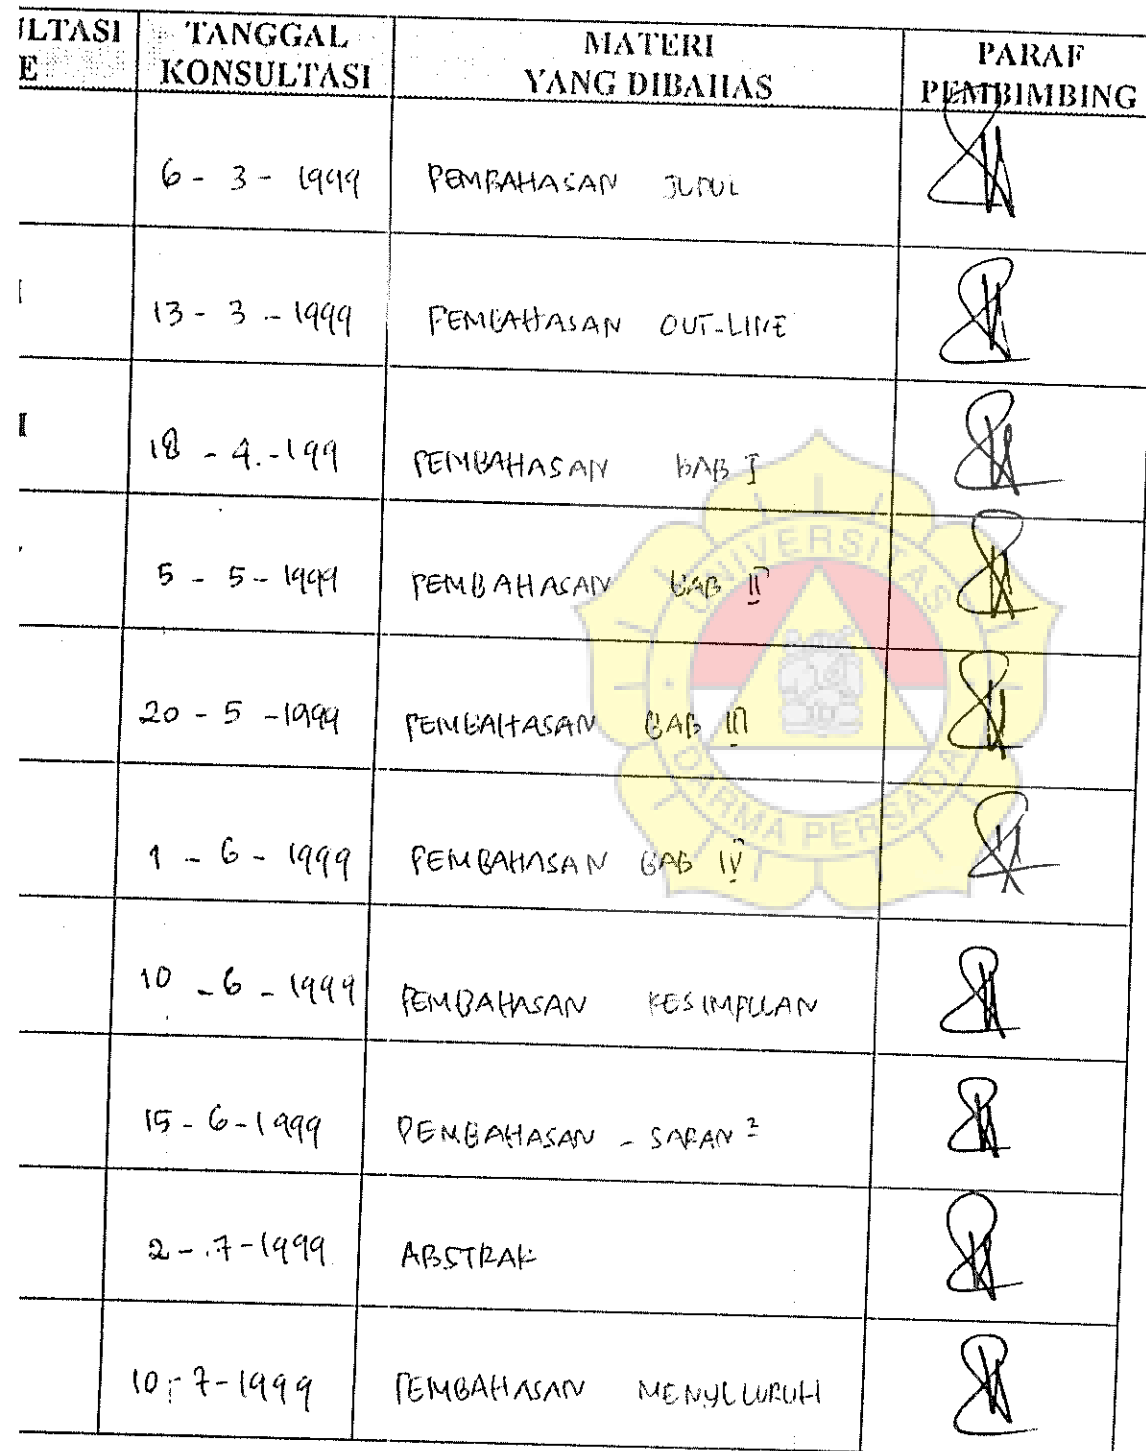 ILTASI TANGGAL MATERI PARAF
E KONSULTASI YANG DIBAHAS PEMBIMBING
6 - 3 - 1999 PEMBAHASAN JUDUL
13 - 3 - 1999 PEMBAHASAN OUT-LINE
18 - 4 - 199 PEMBAHASAN BAB I
5 - 5 - 1999 PEMBAHASAN BAB II
20 - 5 - 1999 PEMBAHASAN BAB III
1 - 6 - 1999 PEMBAHASAN BAB IV
10 - 6 - 1999 PEMBAHASAN KESIMPULAN
15 - 6 - 1999 PEMBAHASAN - SARAN2
2 - 7 - 1999 ABSTRAK
10 - 7 - 1999 PEMBAHASAN MENYLURUH
UNIVERSITAS
DARMA PERSADA